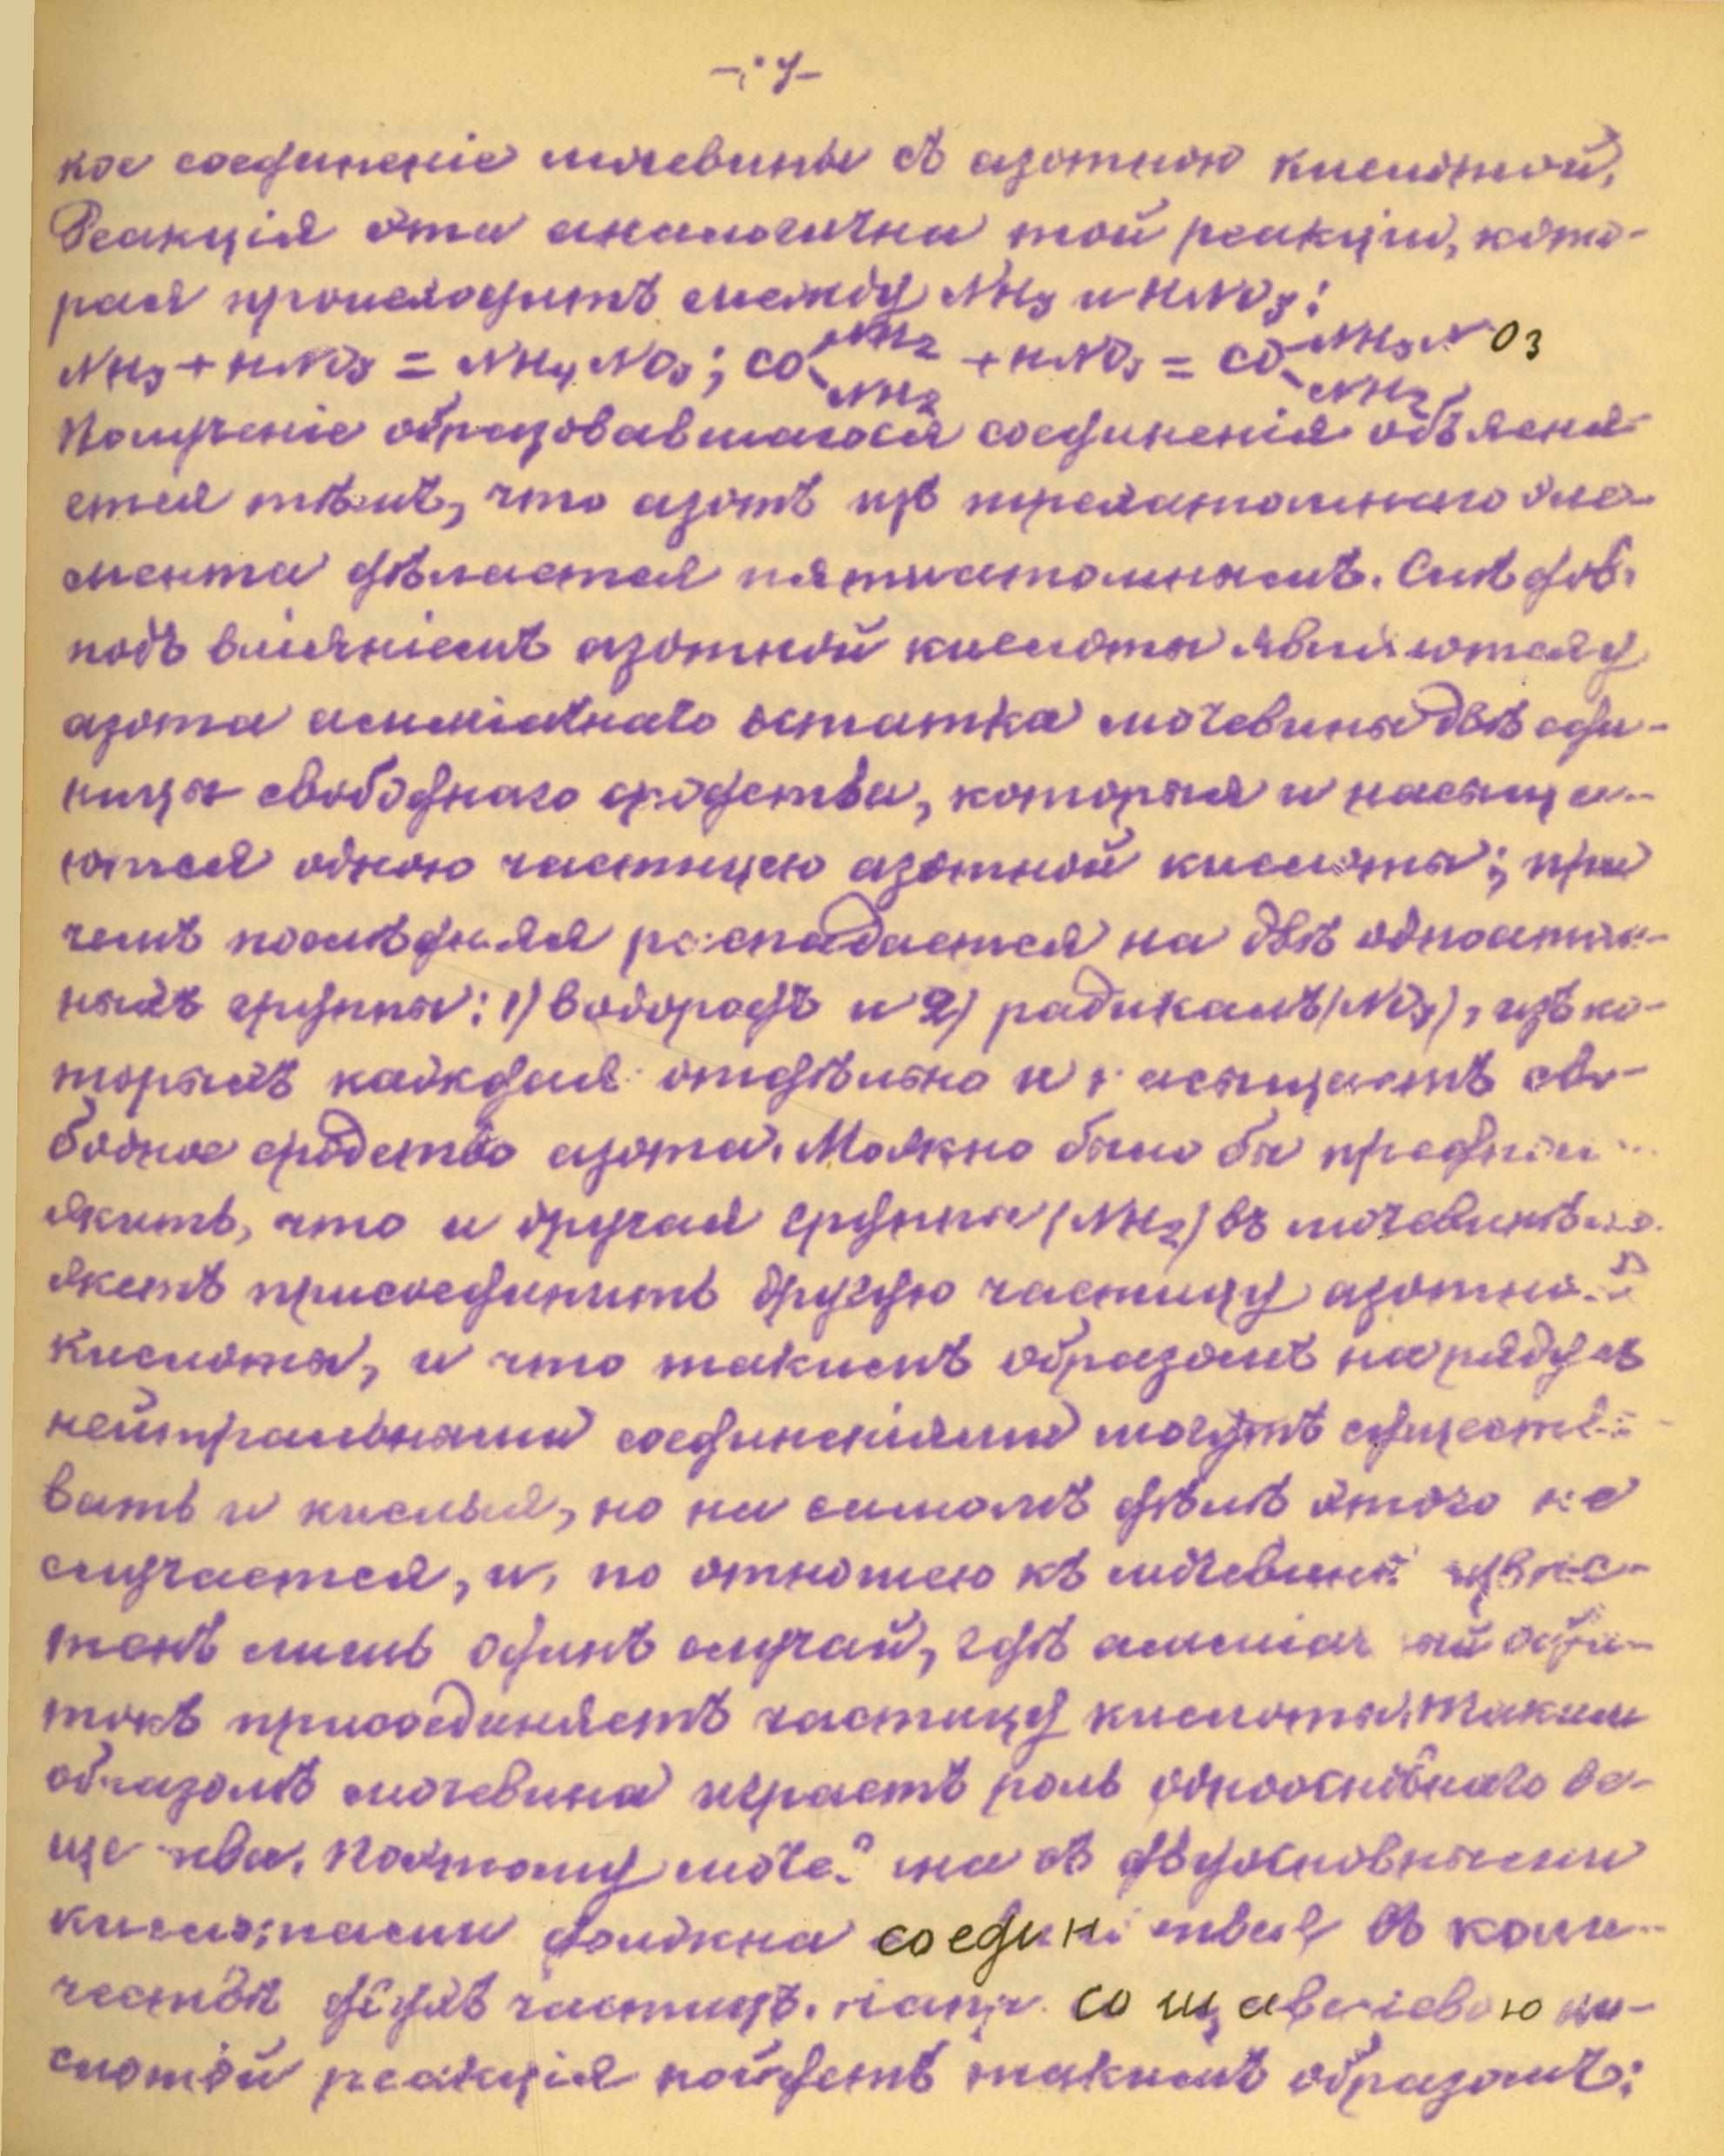 -7-
кое соединеніе мочевины съ азотною кислотой.
Реакція эта аналогична той реакціи, кото-
рая происходитъ между NH3 и HNO3:
NH3 + HNO3 = NH4NO3; CO<NH2 NH2 + HNO3 = CO<NH3NO3 NH2
Полученіе образовавшагося соединенія объясня-
ется тѣмъ, что азотъ изъ трехатомнаго эле-
мента дѣлается пятиатомнымъ. Слѣдов.
подъ вліяніемъ азотной кислоты являются у
азота амміачнаго остатка мочевины двѣ еди-
ницы свободнаго сродства, которыя и насыща-
ются одною частицею азотной кислоты; при
чемъ послѣдняя распадается на двѣ одноатом-
ныхъ группы: 1) водородъ и 2) радикалъ (NO3), изъ ко-
торыхъ каждая отдѣльно и насыщаетъ сво-
бодное сродство азота. Можно было бы предполо-
жить, что и другая группа (NH2) въ мочевинѣ мо-
жетъ присоединить другую частицу азотной
кислоты, и что такимъ образомъ на ряду съ
нейтральными соединеніями могутъ существо-
вать и кислыя, но на самомъ дѣлѣ этого не
случается, и, по отношею къ мочевинѣ извѣс-
тенъ лишь одинъ случай, гдѣ амміачный оста-
токъ присоединяетъ частицу кислоты. Таким
образомъ мочевина играетъ роль одноосновнаго ве-
щества. Поэтому мочевина съ двуосновными
кислотами должна соединиться въ коли-
чествѣ двухъ частицъ. напр. со щавелевою ки-
слотой реакція пойдетъ такимъ образомъ: